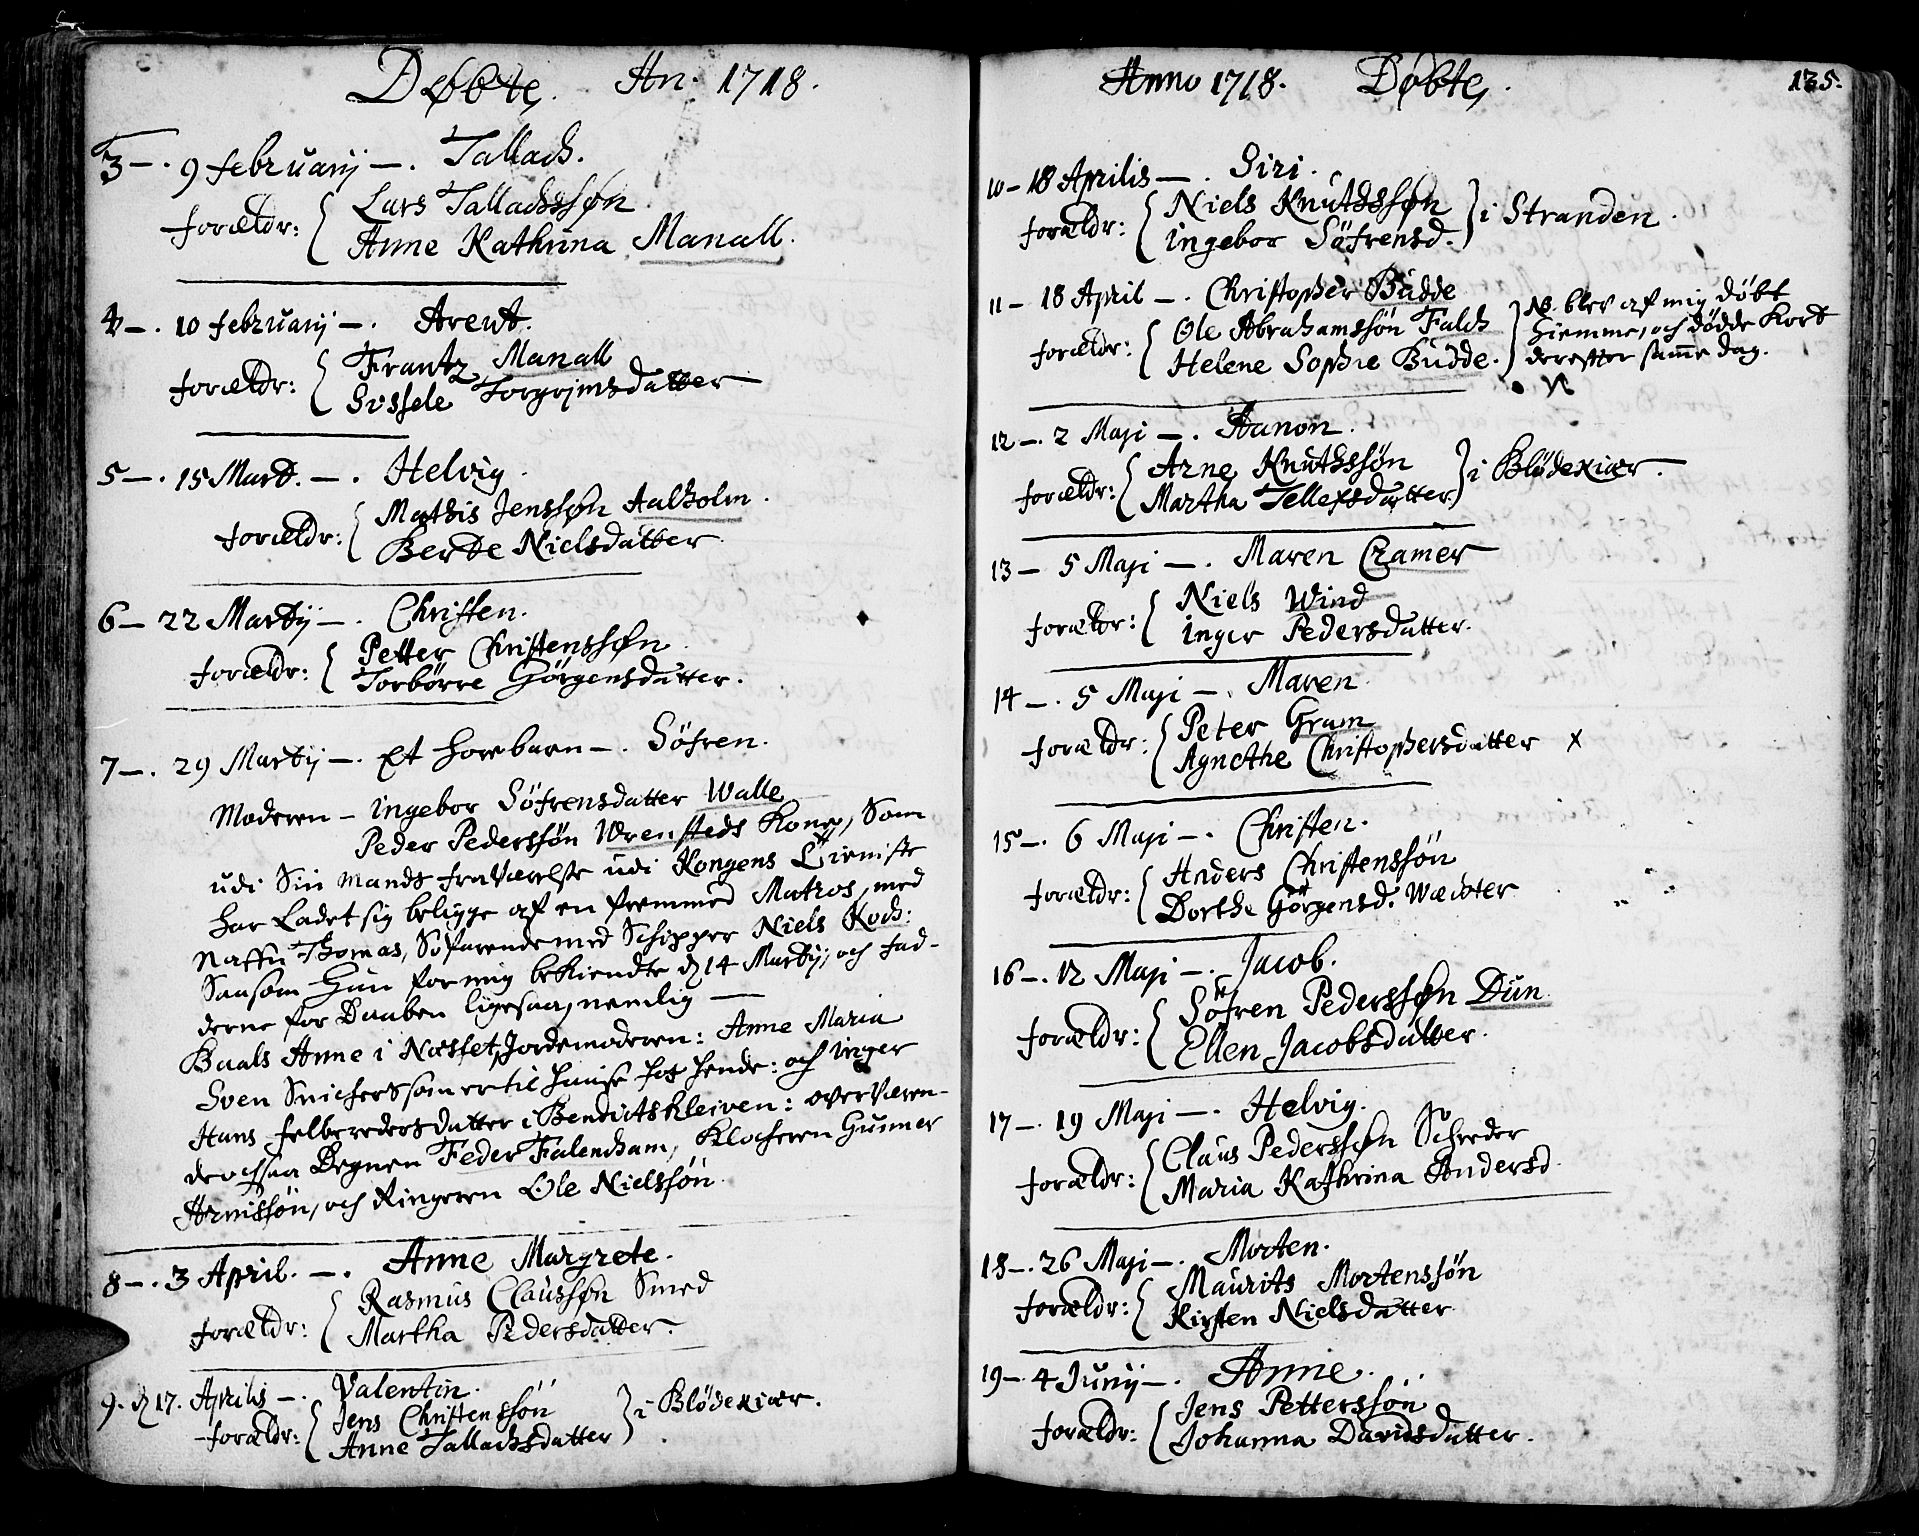 Døbte. An. 1718.
3 —. 9 februarij —. Tallach.
forældr: Lars Tallachssøn.
Anne Kathrina Manall.
4 —. 10 februarij —. Arent.
forældr: Frantz Manall
Sissele Torgrimsdatter
5 —. 15 Mart. —. Helvig.
forældr: Mathis Jenssøn Aalholm.
Berte Nielsdatter
6 — 22 Martij —. Christen.
forældr: Petter Christenssøn
Torbørre Görgensdatter.
7 —. 29 Martij —. Et horebarn —. Söfren.
Moderen — ingebor Söfrensdatter Walle
Peder Pederssøn Wrensteds Kone, Som
udi Sin Mands fraværelse udi Kongens Tieniste
har Ladet sig beligge af en fremmed Matros, med
Nafn Thomas, Sofarende med Schipper Niels Koch:
Saasom Hun for mig bekiendte d 14 Martij, och fad-
derne for Daaben ligesaa, nemlig —
Baals Anne i Næsset, Jordemoderen: Anne Maria
Sven Snickers som er til huuse hos hende: och inger
Hans felberedersdatter i Bendictskleiven: overværen-
de ochsaa Degnen Feder Falencham, Klocheren Gunner
Arnissön, och Ringeren Ole Nielssön
8 —. 3 April. —. Anne Margrete.
forældr: Rasmus Claussøn Smed
Martha Pedersdatter.
9. d 17. Aprilis —. Valentin.
forældr: Jens Christenssön
Anne Tallachsdatter i Blödekiær.
Anno 1718. Døbte. 135.
10 — 18 Aprilis —. Siri.
forældr: Niels Knutssøn
ingebor Söfrensd. i Stranden.
11 — 18 April —. Christopher Budde
forældr: Ole Abrahamssön Falch
Helene Sophie Budde.
NB. blev af mig döbt
hiemme, och dödde Kort
derefter samme dag.
12 —. 2 Maji —. Aanon.
forældr: Arne Knuthssøn
Martha Tellefsdatter i Blödekiær.
13 — 5 Maji —. Maren Cramer
forældr: Niels Wind
inger Pedersdatter.
14 —. 5 Maji —. Maren
forældr: Peter Gram
Agnethe Christophersdatter x
15 —. 6 Maji —. Christen.
forældr: Anders Christenssön
Dorthe Görgensd. Wæ
16 —. 12 Maji —. Jacob.
forældr: Söfren Pederssøn Dun
Ellen Jacobsdatter.
17 —. 19 Maji —. Helvig.
forældr: Claus Pederssøn Schreder
Maria Kathrina Andersd.
18 —. 26 Maji —. Morten.
forældr: Maurits Mortenssön
Kirsten Nielsdatter
19 —. 4 Junij —. Anne.
forældr: Jens Petterssön
Johanna Davidsdatter.